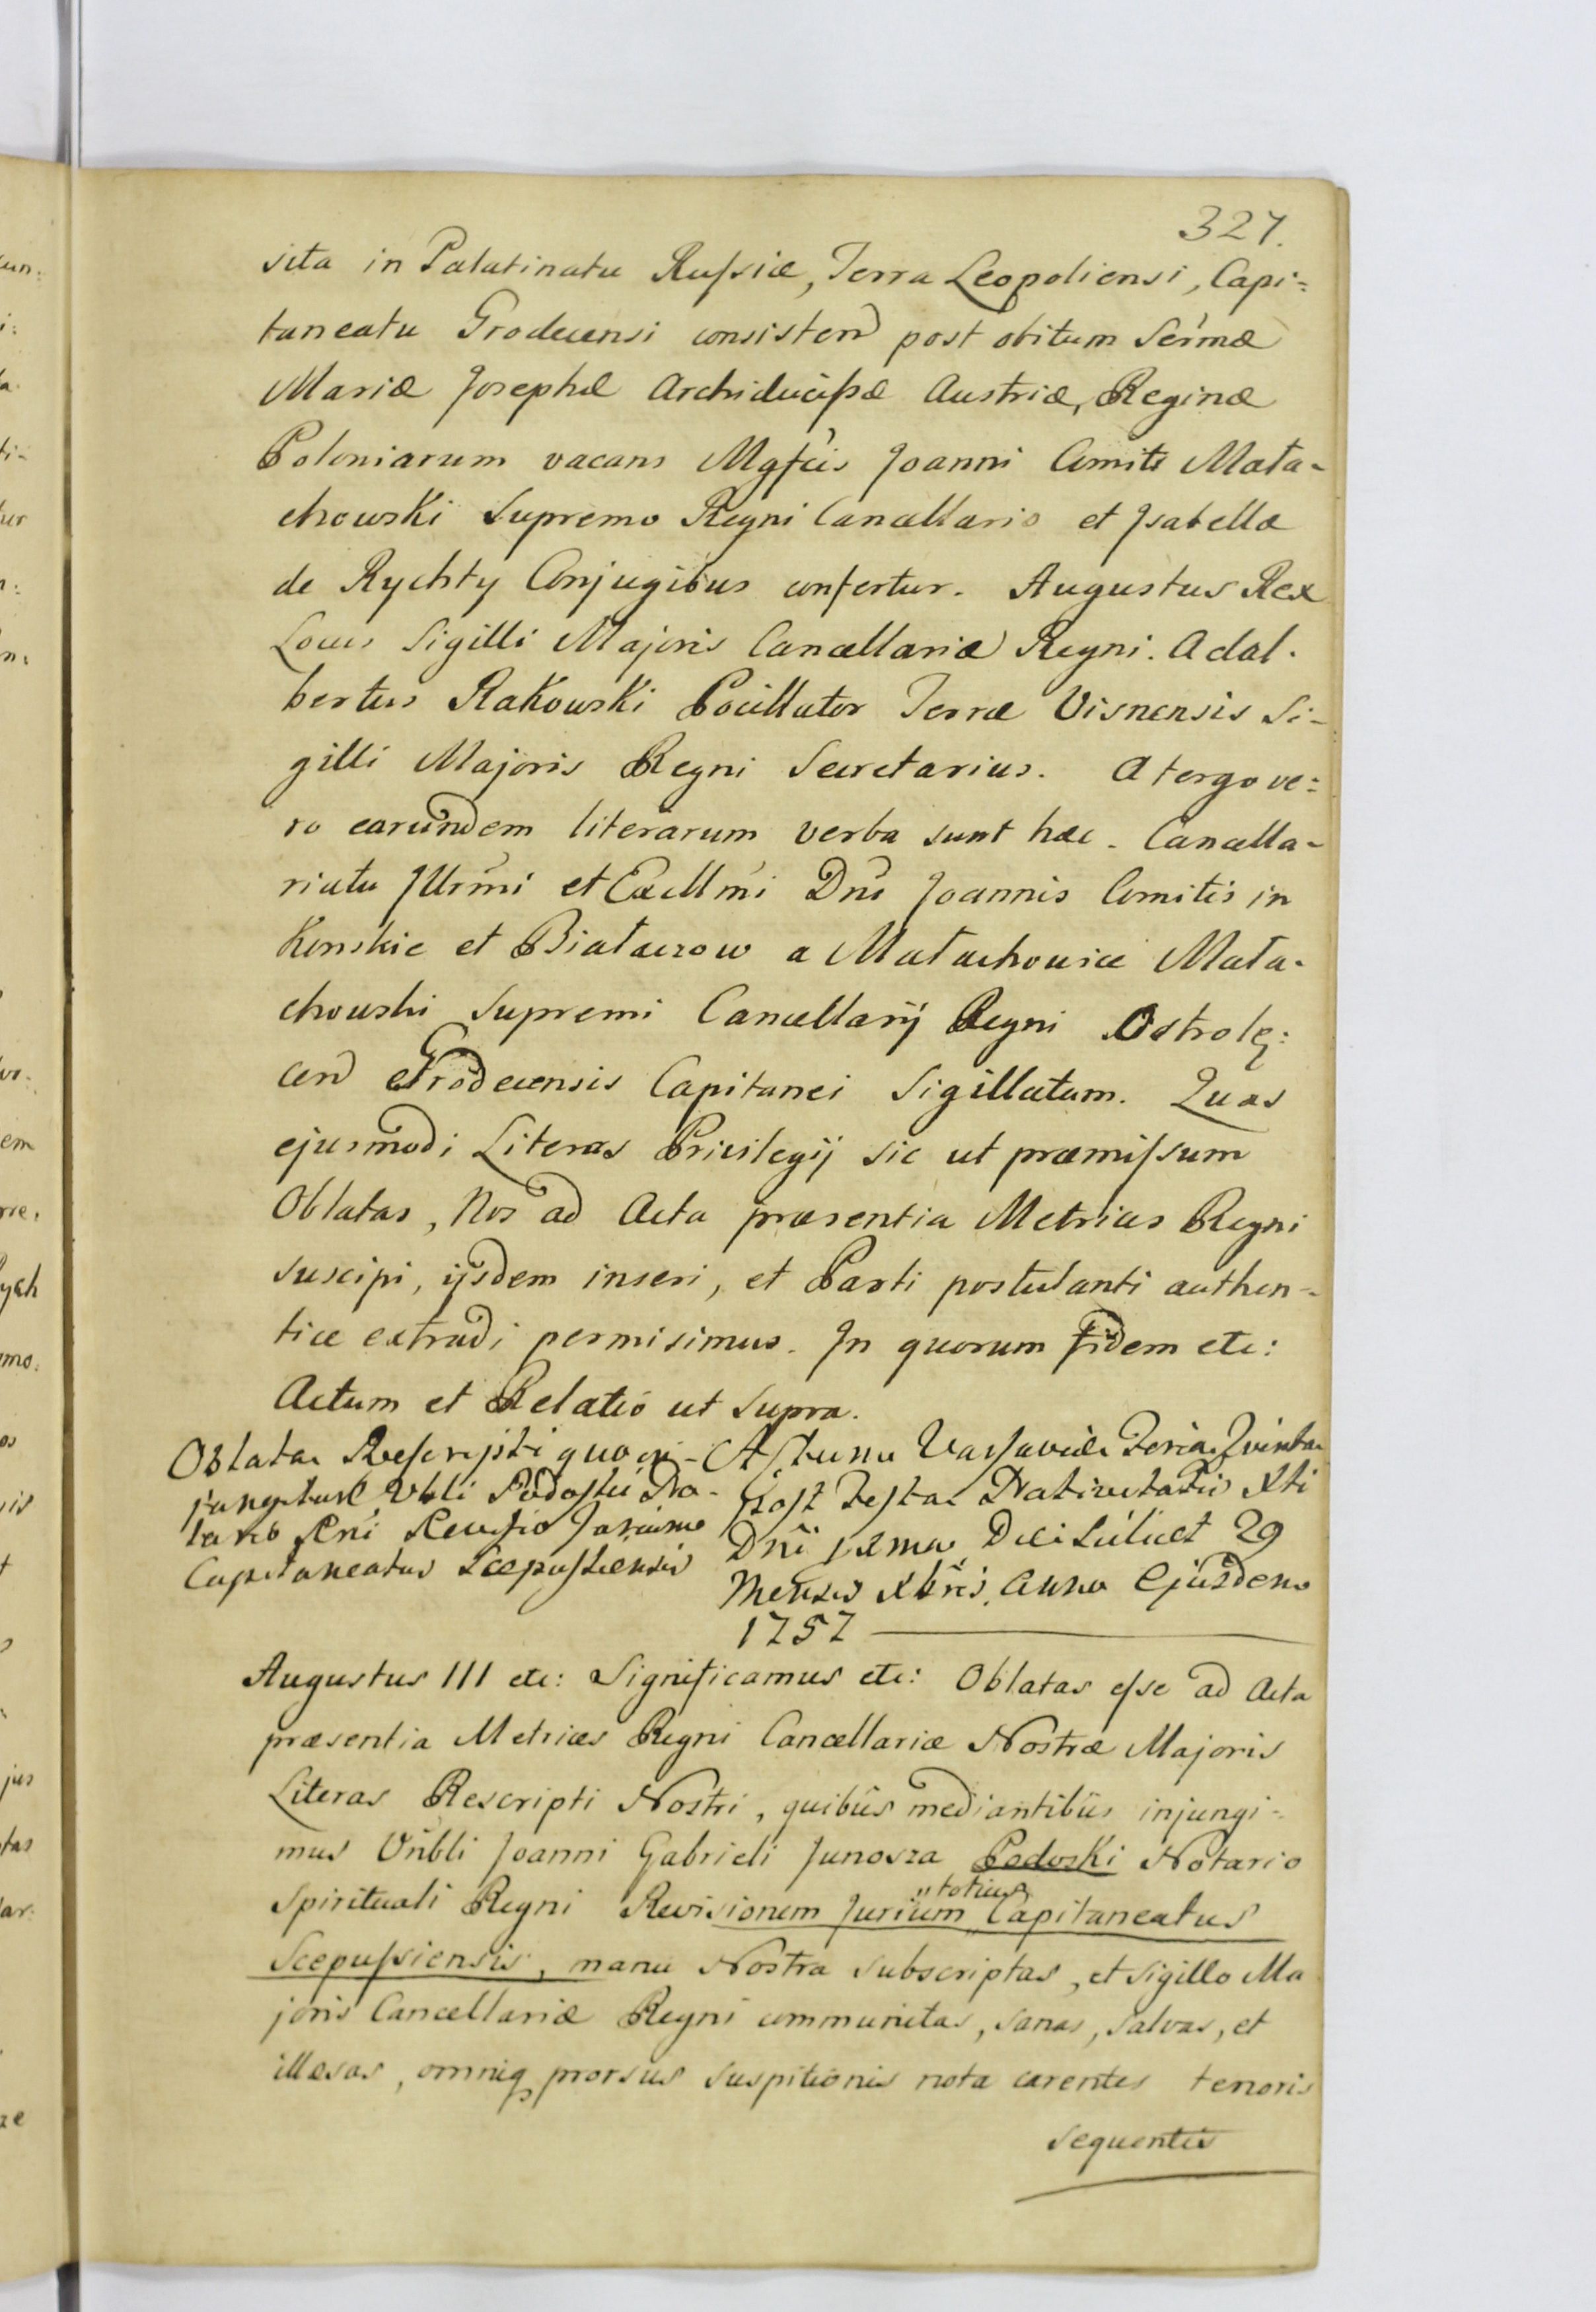 327.
sita in Palatinatu Russiæ, Terra Leopoliensi, Capi=
taneatu Grodecensi consisten post obitum Sermæ
Mariæ Josephæ Archiducissæ Austriæ, Reginæ
Poloniarum vacans Mgfcis Joanni Comiti Mała-
chowski Supremo Regni Cancellario et Isabellæ
de Rychty Conjugibus confertur. Augustus Rex
Locus Sigilli Majoris Cancellariæ Regni. Adal-
bertus Rakowski Pocillator Terræ Visnensis Si-
gilli Majoris Regni Secretarius. A tergo ve=
ro earundem literarum verba sunt hæc. Cancella-
riatu Illrmi et Excllmi Dni Joannis Comitis in
Konskie et Białaczow a Małachowice Mała-
chowski Supremi Cancellarij Regni Ostrolę:
cen Grodecensis Capitanei Sigillatum. Quas
ejusmodi Literas Privilegij sic ut præmissum
Oblatas, Nos ad Acta præsentia Metrices Regni
suscipi, ijsdem inseri, et Parti postulanti authen-
tice extradi permisimus. In quorum fidem etc:
Actum et Relatio ut supra.
Oblata Rescripti quo in-
jungitur Vbli Podoski No-
tario Rni Revisio Jurium
Capitaneatus Scepusiensis
Actum Varsaviæ Feria Quinta
post Festa Nativitatis Xti
Dni pxma Die Scilicet 29
Mensis Xbris Anno Ejusdem
1757
Augustus III etc: Significamus etc: Oblatas esse ad Acta
præsentia Metrices Regni Cancellariæ Nostræ Majoris
Literas Rescripti Nostri, quibus mediantibus injungi-
mus Vnbli Joanni Gabrieli Junosza Podoski Notario
Spirituali Regni Revisionem Jurium "totius Capitaneatus
Scepussiensis, manu Nostra subscriptas, et Sigillo Ma
joris Cancellariæ Regni communitas, sanas, salvas, et
illæsas, omniq prorsus suspitionis nota carentes tenoris
sequentis